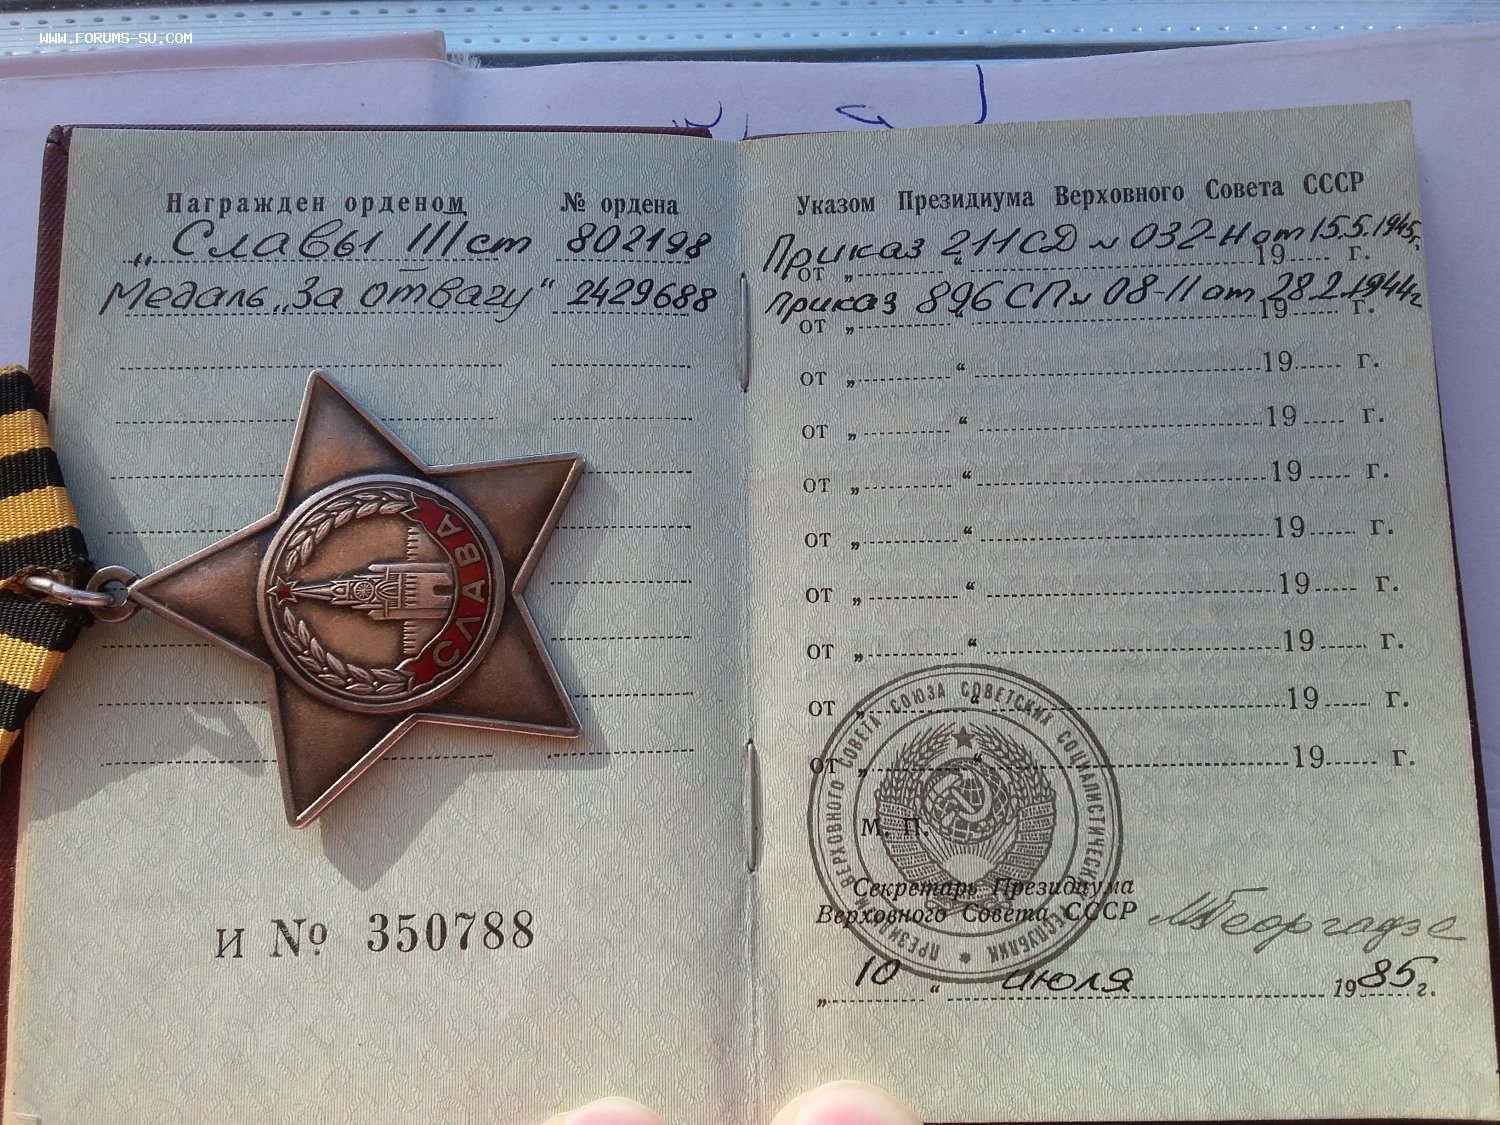 WWW.FORUMS-SU.COM
Награжден орденом № ордена
„Славы III ст 802198
Медаль „За отвагу“ 2429688
СЛАВА
И № 350788
Указом Президиума Верховного Совета СССР
Приказ 211 СД № 032-Н от 15.5.1945г.
от „ “ 19 г.
Приказ 896 СП № 08-Н от 28.2.1944г
от „ “ 19 г.
от „ “ 19 г.
от „ “ 19 г.
от „ “ 19 г.
от „ “ 19 г.
от „ “ 19 г.
от „ “ 19 г.
от „ “ 19 г.
от „ “ 19 г.
ПРЕЗИДИУМ ВЕРХОВНОГО СОВЕТА СОЮЗА СОВЕТСКИХ СОЦИАЛИСТИЧЕСКИХ РЕСПУБЛИК
М. П.
Секретарь Президиума
Верховного Совета СССР МГеоргадзе
„10“ июля 1985г.